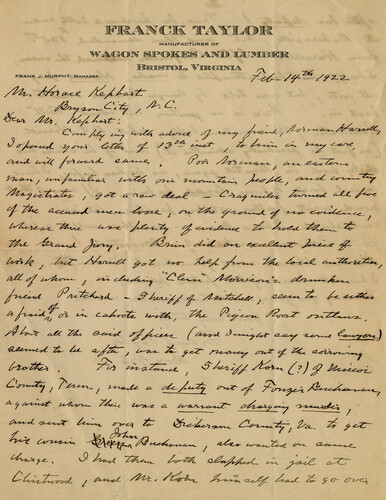 FRANCK TAYLOR
MANUFACTURER OF
WAGON SPOKES AND LUMBER
BRISTOL, VIRGINIA
FRANK J. MURPHY, MANAGER
Feb-14th 1922
Mr. Horace Kephart
Bryson City, N.C.
Dear Mr. Kephart:
Complying with advice of my friend, Norman
I opend your letter of 13th inst, to him in my care,
and will forward same. Poor Norman, an eastern
man, unfamiliar with our mountain people, and country
Magistrates, got a raw deal – turned all five
of the accused men loose, on the ground of no evidence,
whereas there was plenty of evidence to hold them to
the Grand Jury. did an excellent piece of
work, but got no help from the local authorities,
all of whom, including "Clem" Morrison's drunken
friend Pritchard – Sheriff of Mitchell, seem to be either
afraid of or in cahoots with, the Pigeon Roost outlaws.
About all the said officers (and I might say some lawyers)
seemed to be after, was to get money out of the sorrowing
brother. For instance, Sheriff (?) of Unicoi
County, Tenn, made a deputy out of Buchanan,
against whom there is a warrant charging murder,
and sent him over to Dickenson County, Va. to get
his cousin John Buchanan, also wanted on same
charge. I had them both slapped in jail at
Clintwood, and Mr. himself had to go over